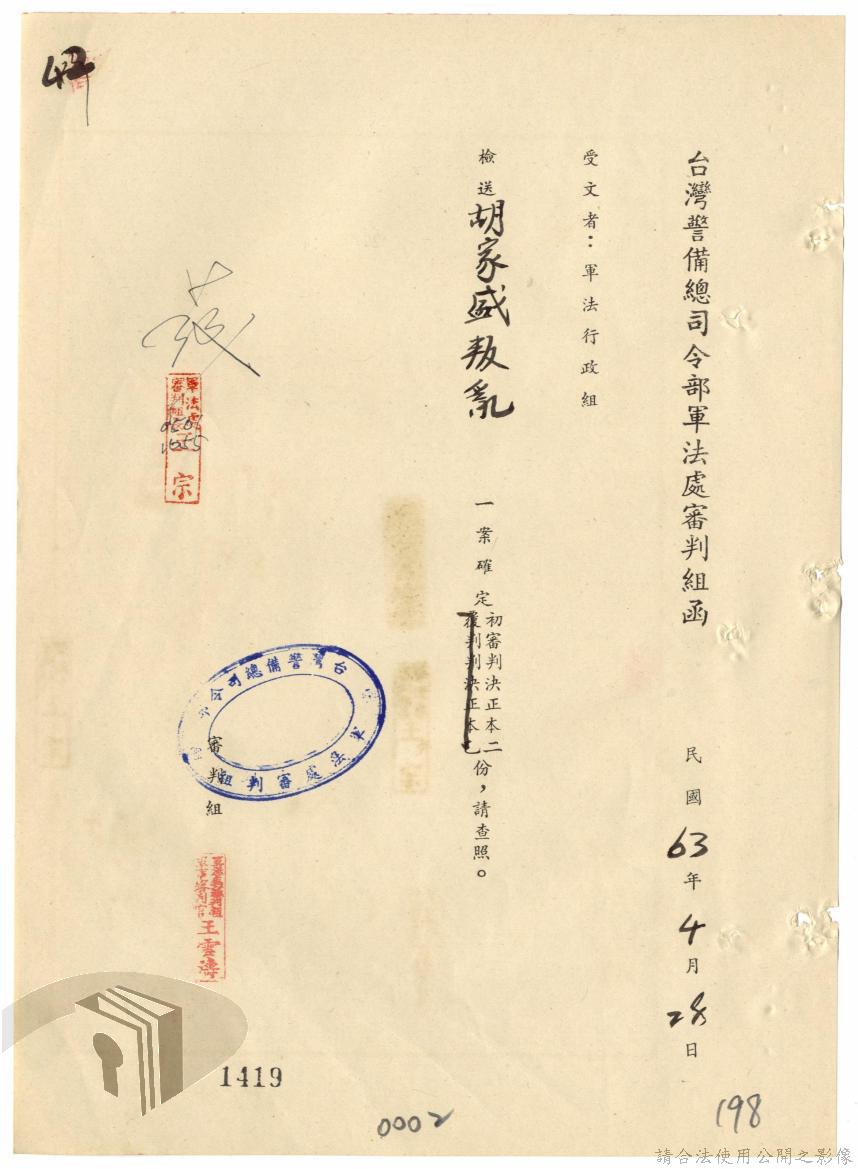 台灣警備總司令部軍法處審判組函
民國63年4月28日
受文者：軍法行政組
檢送胡家盛叛亂一案確定初審判決正本二份，請查照。
復判判決正本乙
審判組
台灣警備總司令部
軍法處審判組
軍法處
審判組
宗
王雲濤
1419
0002
198
請合法使用公開之影像